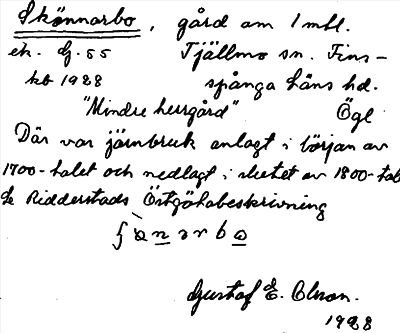 Skönnarbo, gård am 1 mtl.
ek. bl. 55 Tjällmo sn. Fins-
kb 1928 spånga läns hd.
"Mindre herrgård" Ögl
Där var järnbruk anlagt i början av
1700-talet och nedlagt i slutet av 1800-tal
se Ridderstads Östgötabeskrivning
Gustaf E. Olsson.
1928